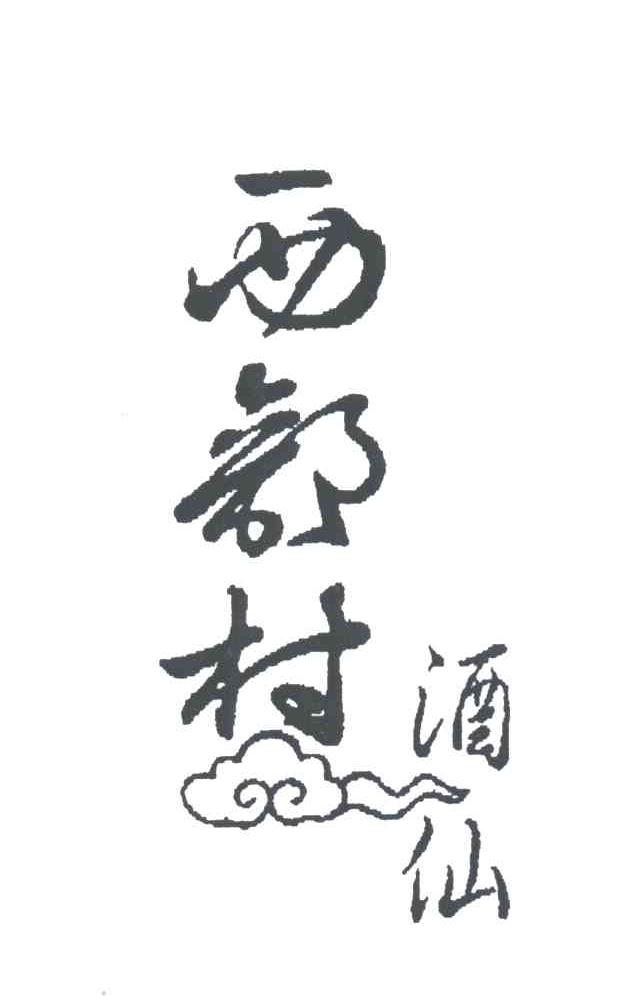 西部村
酒仙